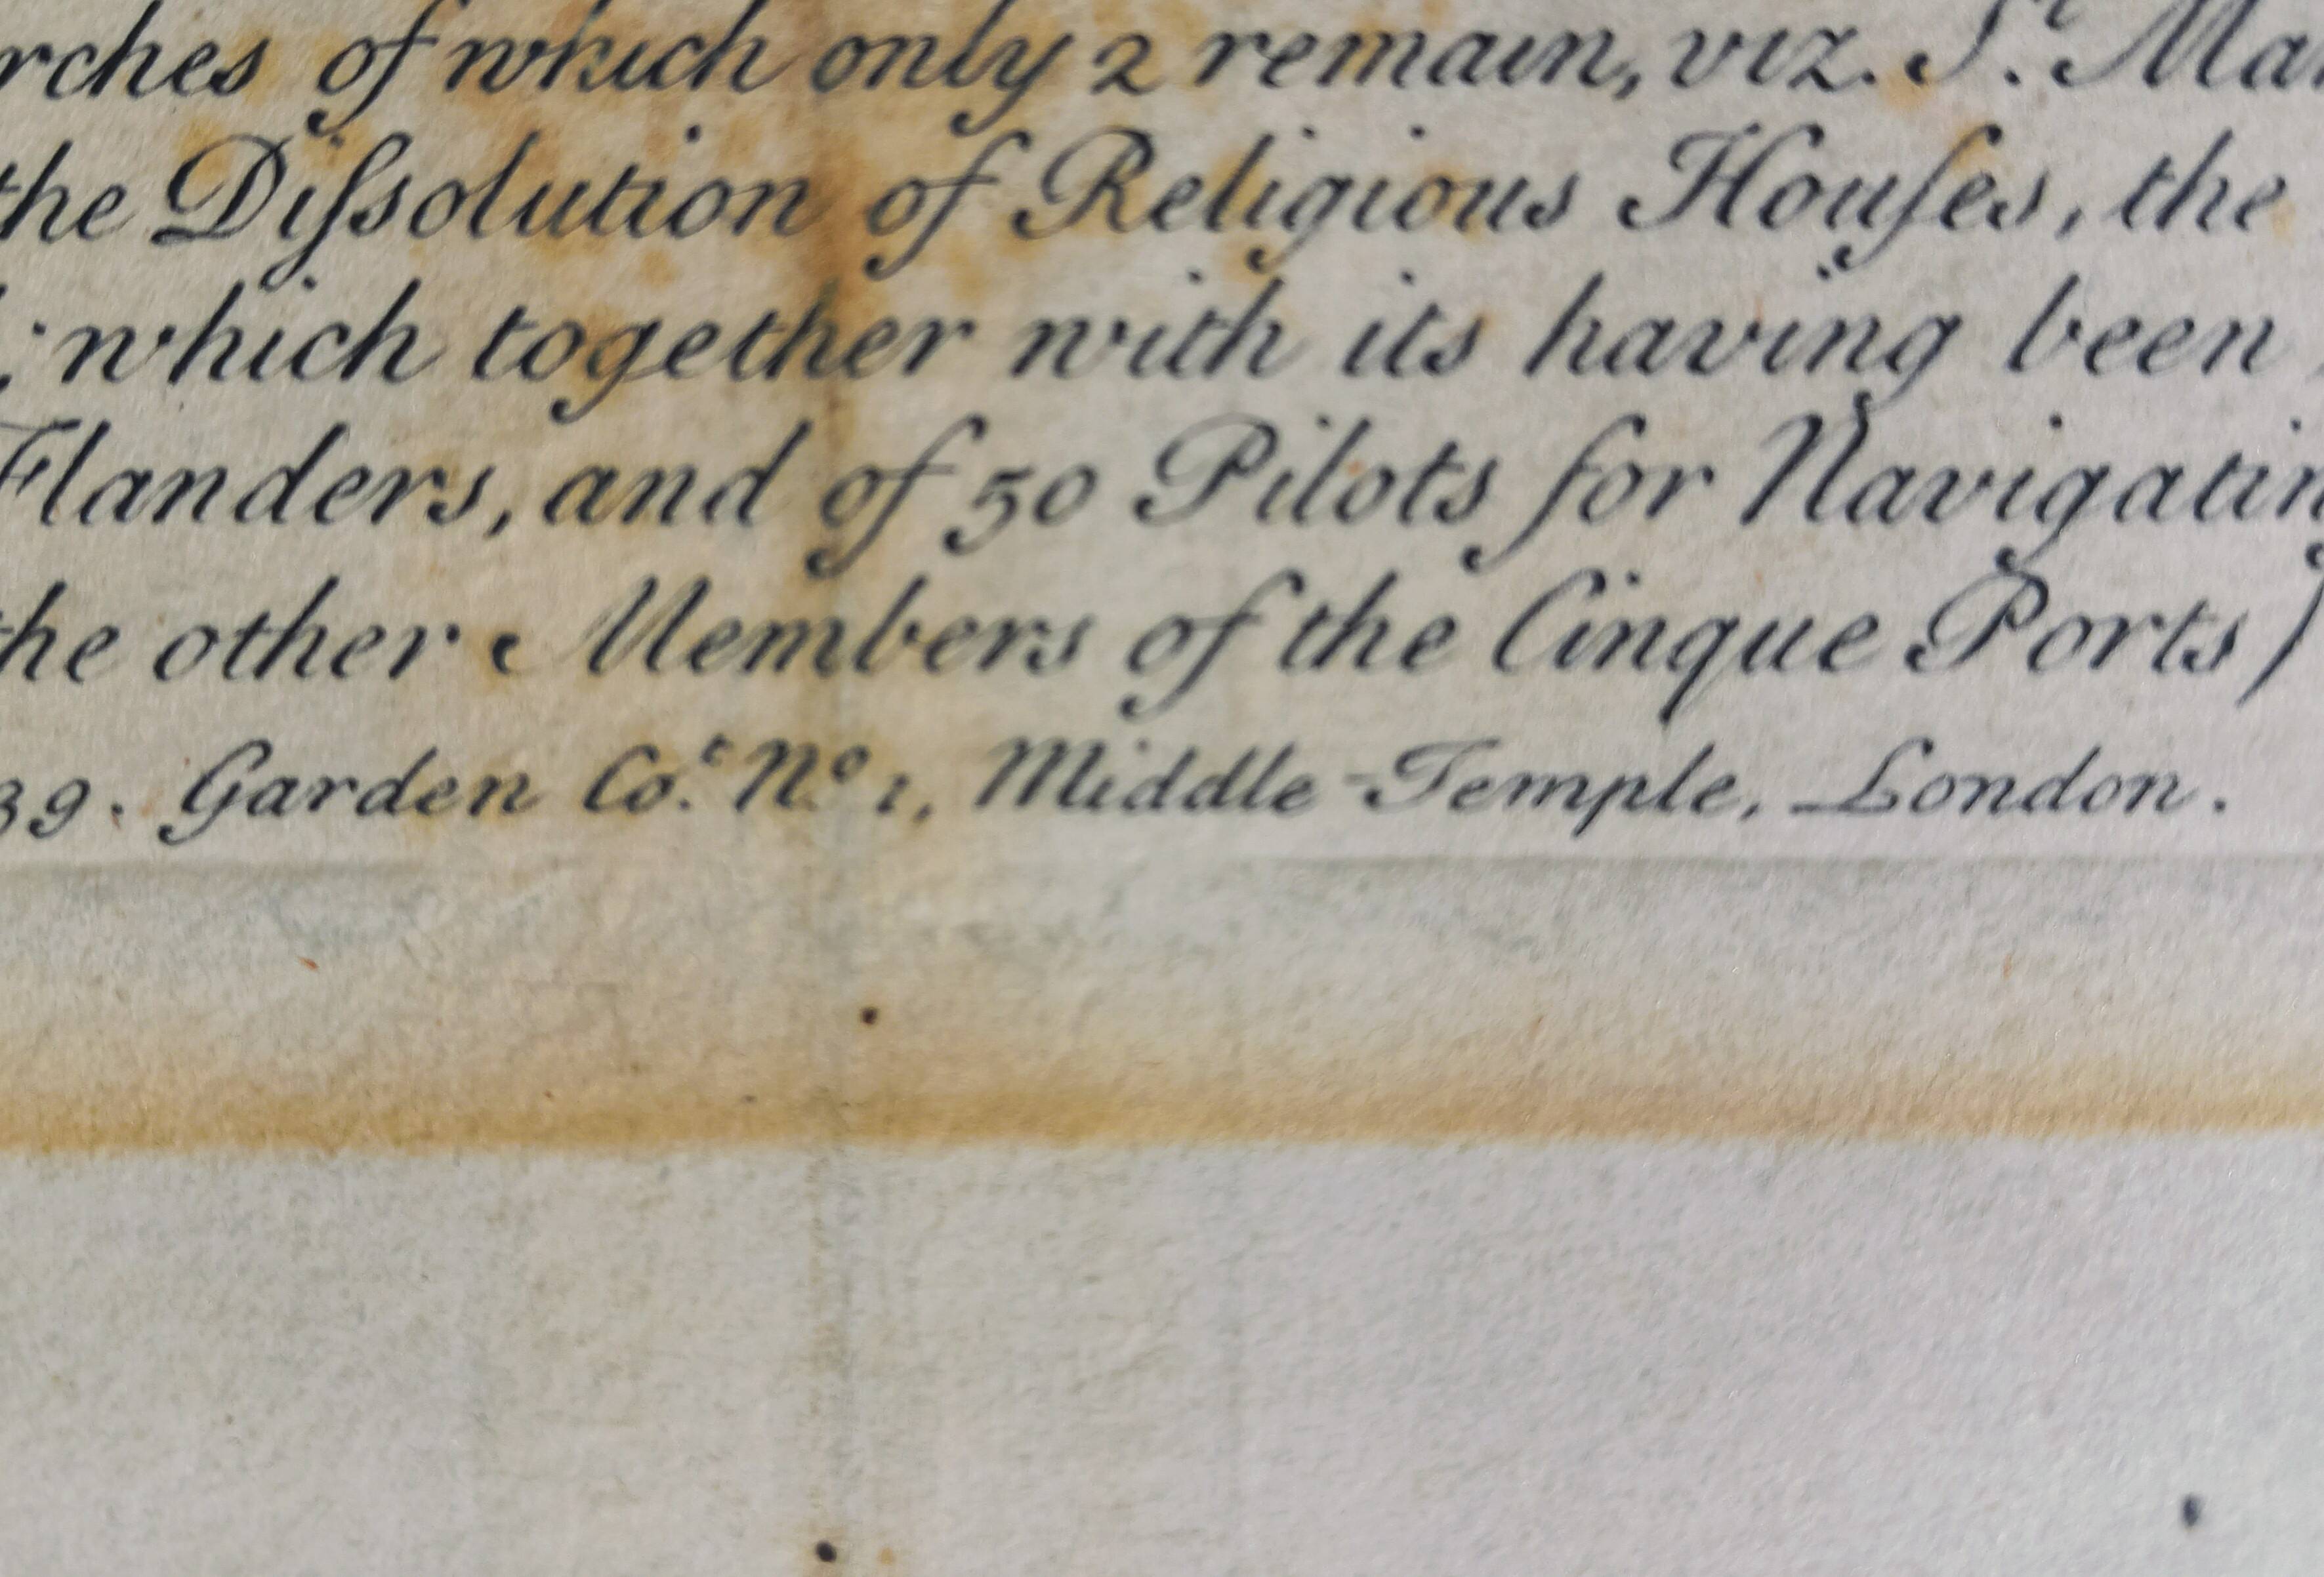 rches of which only 2 remain, viz. S.t Mar
the Diſsolution of Religious Houſes, the
; which together with its having been
Flanders, and of 50 Pilots for Navigatin
the other Members of the Cinque Ports)
39. Garden Co.t N.o 1, Middle-Temple, London.